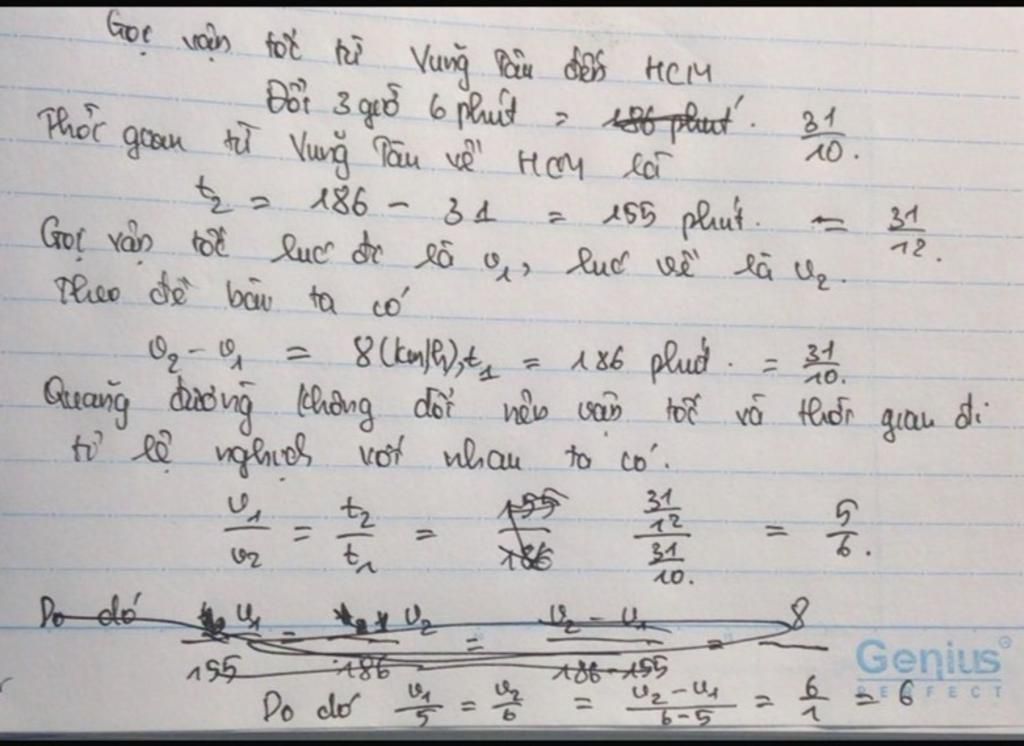 Gọi vận tốc từ Vũng Tàu đến HCM
Đổi 3 giờ 6 phút = 186 phút. 31/10.
Thời gian từ Vũng Tàu về HCM là
t₂ = 186 - 31 = 155 phút. = 31/12.
Gọi vận tốc lúc đi là v₁, lúc về là v₂.
Theo đề bài ta có
v₂ - v₁ = 8 (km/h), t₁ = 186 phút. = 31/10.
Quãng đường không đổi nên vận tốc và thời gian đi
tỉ lệ nghịch với nhau ta có.
v₁/v₂ = t₂/t₁ = 155/186 (31/12)/(31/10.) = 5/6.
Do đó v₁/155 = v₂/186 = (v₂ - v₁)/(186-155) = 8
Do đó v₁/5 = v₂/6 = (v₂ - v₁)/(6-5) = 6/1 = 6
Genius
PERFECT